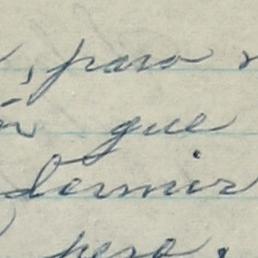 , paso
que
dormir
pero.